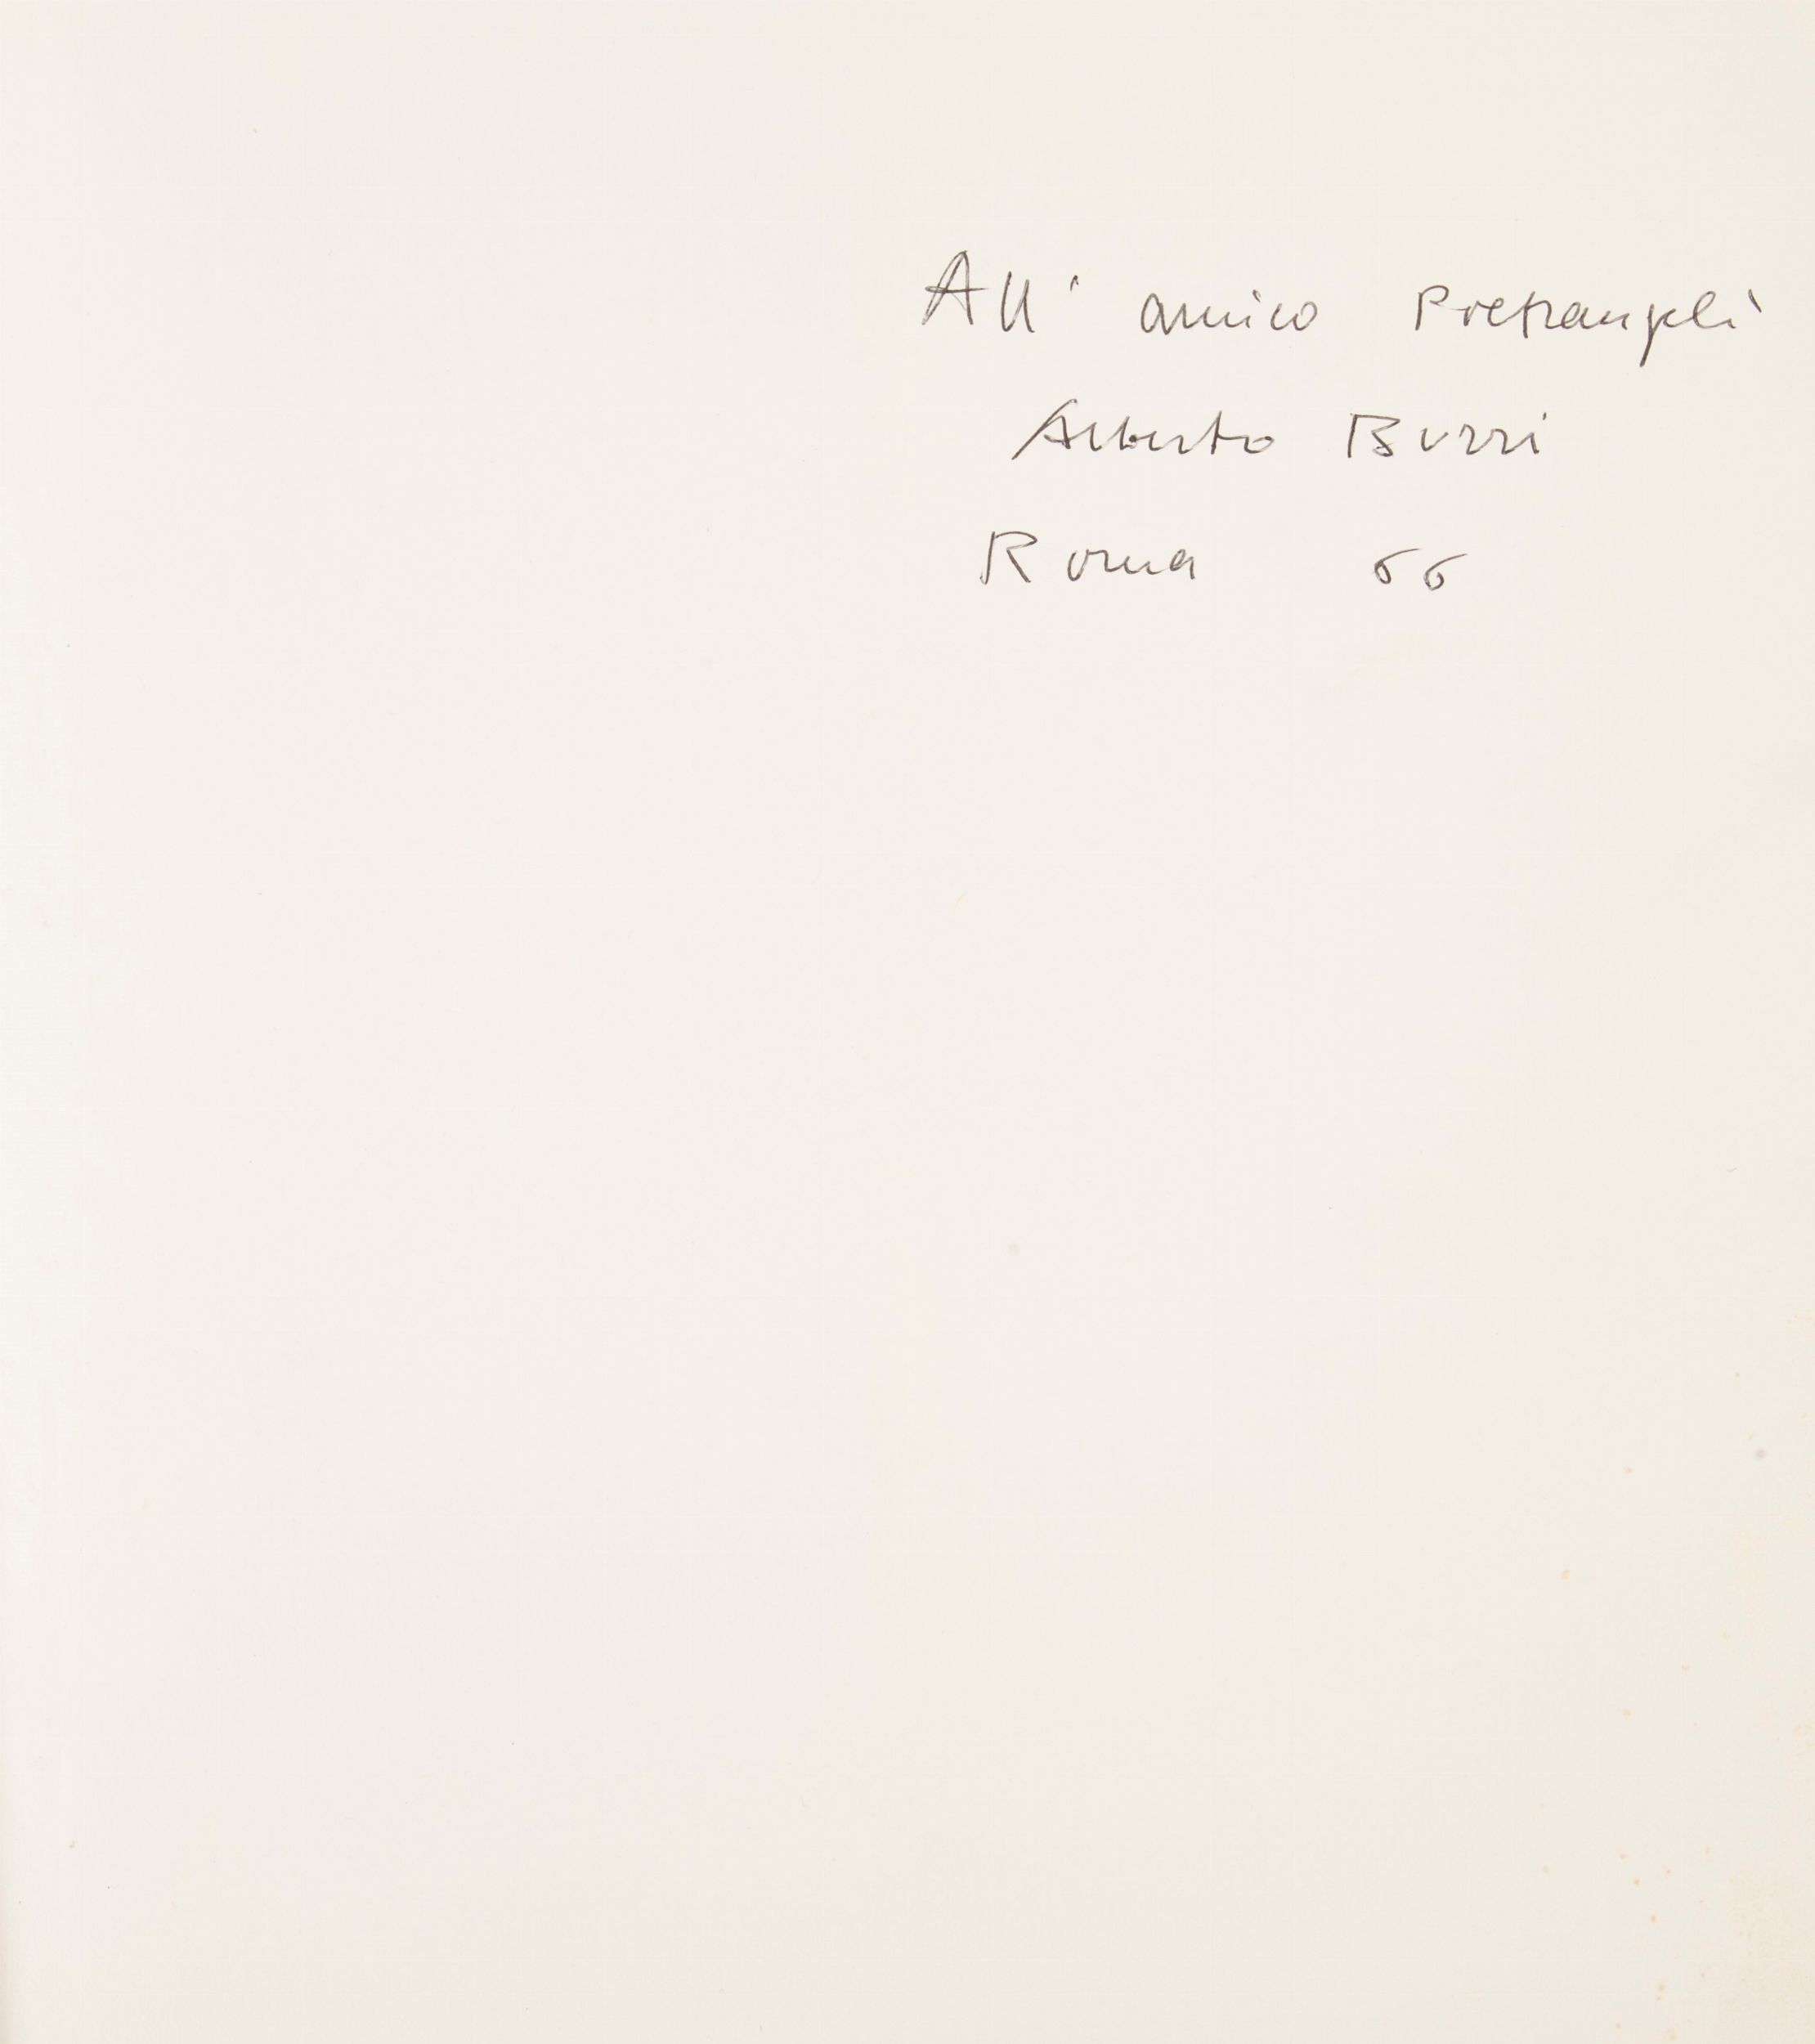 All' amico Pietrangeli
Alberto Burri
Roma 66